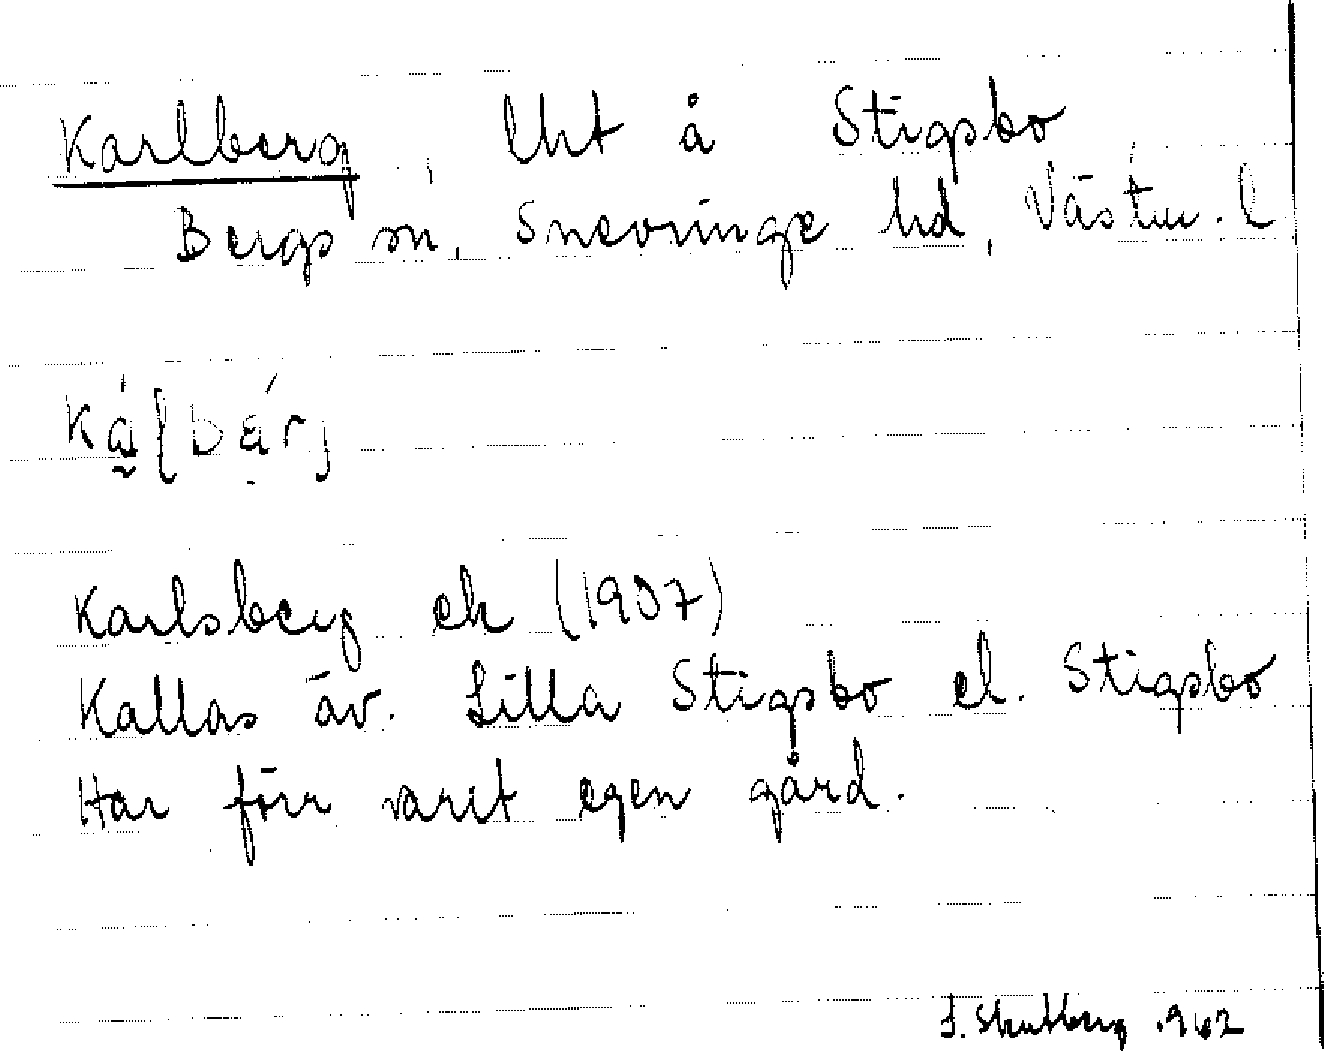 Karlberg, lht å Stigsbo
Bergs sn, Snevringe hd, Västm. l
Karlsberg ek (1907)
Kallas äv. Lilla Stigsbo el. Stigsbo
Har förr varit egen gård.